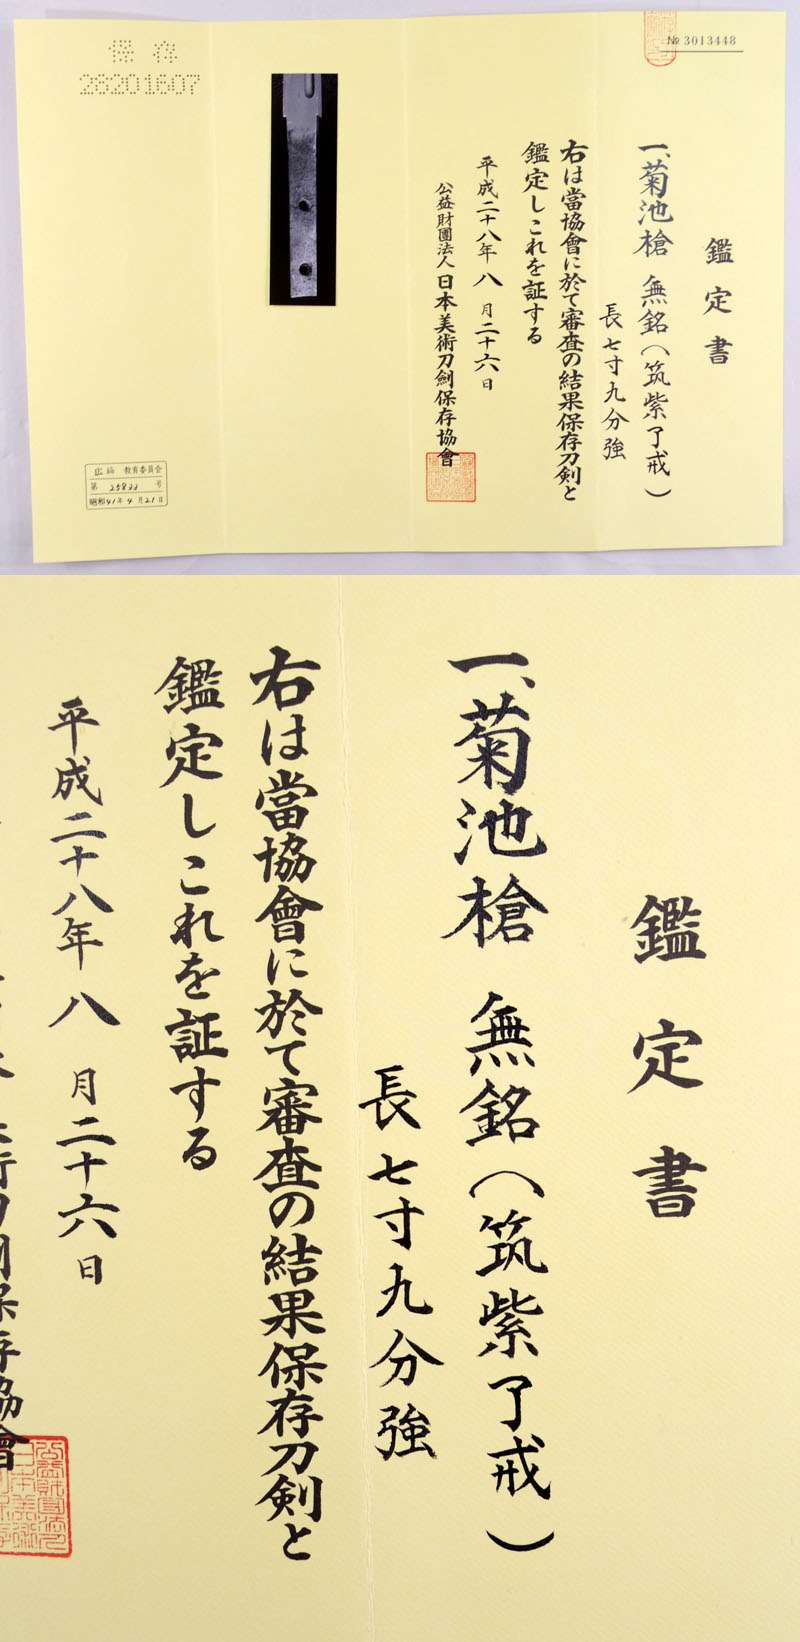 № 3013448
鑑定書
一、菊池槍 無銘(筑紫了戒)
長七寸九分強
右は當協會に於て審査の結果保存刀剣と
鑑定しこれを証する
平成二十八年八月二十六日
公益財團法人日本美術刀劍保存協會
保存
28201607
広島 教育委員会
第 25822 号
昭和41年4月21日
鑑定書
一、菊池槍 無銘(筑紫了戒)
長七寸九分強
右は當協會に於て審査の結果保存刀剣と
鑑定しこれを証する
平成二十八年八月二十六日